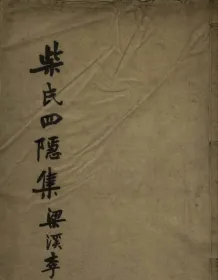 柴氏四隱集梁溪李